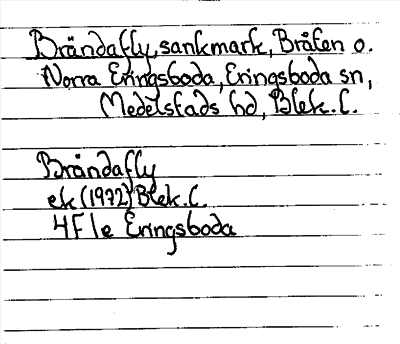 Brändafly, sankmark, Bråten o.
Norra Eringsboda, Eringsboda sn,
Medelstads hd, Blek. l.
Brändafly
ek (1972) Blek. l.
4F 1e Eringsboda